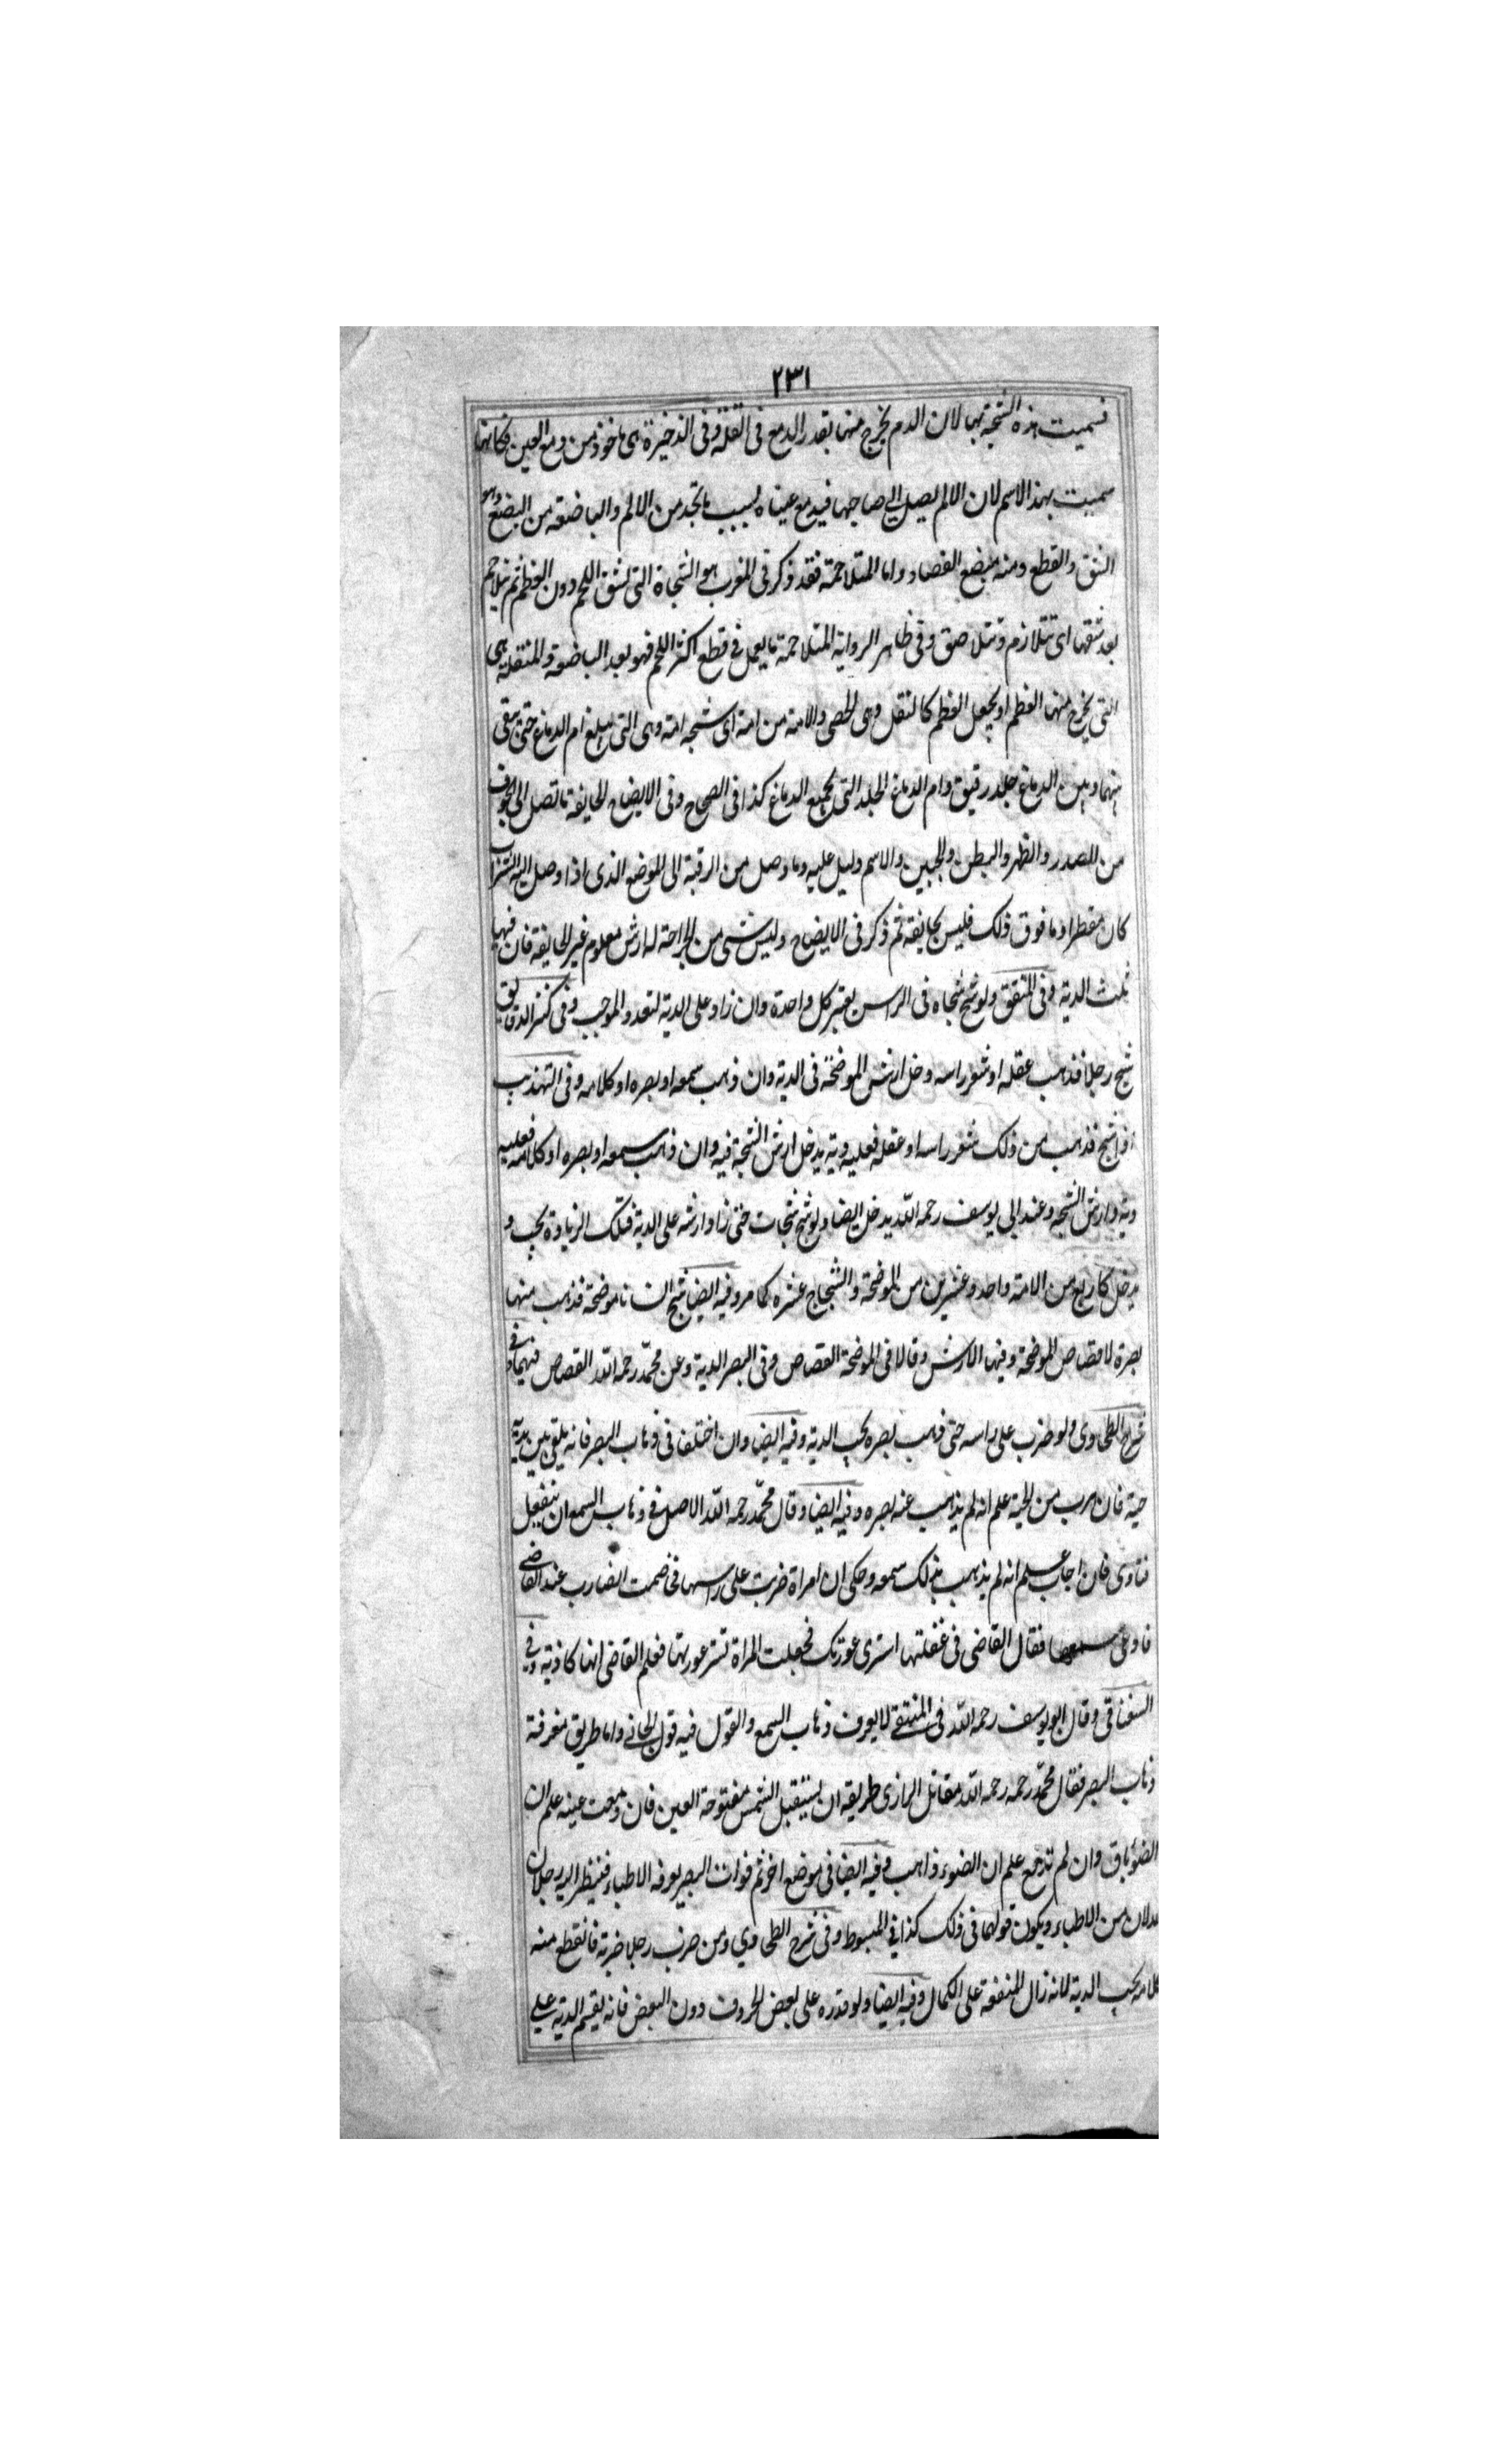 ٢٣١
فسميت هذه الشجة بها لان الدم يخرج منها بقدر الدمع فى القلة وفى الذخيرة هى ماخوذ من دمع العين فكانها
سميت بهذا الاسم لان الالم يصل الى صاحبها فيدمع عيناه بسبب ما تجد من الالم والباضعة من البضع وهو
الشق والقطع ومنه مبضع الفصاد واما المتلاحمة فقد ذكر فى المغرب هو الشجاة التى تشق اللحم دون العظم ثم تتلاحم
بعد شقها اى تتلازم وتتلاصق وفى ظاهر الرواية المتلاحمة ما يعمل فى قطع اكثر اللحم فهو بعد الباضعة والمنتقلة هى
التى يخرج منها العظم او يجعل العظم كالنقل وهى الحصى والامة من امة اى شجه امة وهى التى تبلغ ام الدماغ حتى يبقى
بينهما وبين الدماغ جلد رقيق وام الدماغ الجلد التى تجمع الدماغ كذا فى الصحاح وفى الايضاح الجايفة ما تصل الى الجوف
من الصدر والظهر والبطن والجبين والاسم دليل عليه وما وصل من الرقبة الى الموضع الذى اذا وصل اليه الشراب
كان مفطرا وما فوق ذلك فليس بجايفة ثم ذكر فى الايضاح وليس شى من الجراحة له ارش معلوم غير الجايفة فان فيها
ثلث الدية وفى المتفق ولو شج شجاه فى الراس يعتبر كل واحدة وان زاد على الدية لتعدد الموجب وفى كنز الدقايق
شج رجلا فذهب عقله او شعر راسه دخل ارش الموضحة فى الدية وان ذهب سمعه او بصره او كلامه وفى التهذيب
اذا شج فذهب من ذلك شعر راسه او عقله فعليه دية يدخل ارش الشجة فيه وان ذهب سمعه او بصره او كلامه فعليه
دية وارش الشجه وعند ابى يوسف رحمه الله يدخل ايضا ولو شج شجات حتى زاد ارشه على الدية فتلك الزيادة يجب و
يدخل كاربع من الامة واحد وعشرين من الموضحة والشجاج عشره كما مر وفيه ايضا شج انسانا موضحة فذهب منها
بصرة لا قصاص الموضحة وفيها الارش وقالا فى الموضحة القصاص وفى البصر الدية وعن محمد رحمه الله القصاص فيهما وفى
شرح الطحاوى ولو ضرب على راسه حتى ذهب بصره يجب الدية وفيه ايضا وان اختلف فى ذهاب البصر فانه يلقى بين يديه
حية فان هرب من الحية علم انه لم يذهب عنه بصره وفيه ايضا وقال محمد رحمه الله الاصل فى ذهاب السمع ان يتغفل
فنادى فان اجاب علم انه لم يذهب بذلك سمعه وحكى ان امراة ضربت على راسها فخصمت الضارب عند القاضى
فادعى سمعها فقال القاضى فى غفلتها استرى عورتك فجعلت المراة تستر عورتها فعلم القاضى انها كاذبة وفى
السغناقى وقال ابو يوسف رحمه الله فى المنتقى لا يعرف ذهاب السمع والقول فيه قول الجانى واما طريق معرفة
ذهاب البصر فقال محمد رحمه رحمه الله مقاتل الرازى طريقه ان يستقبل الشمس مفتوحة العين فان دمعت عينه علم ان
الضوء باق وان لم تدمع علم ان الضوء ذاهب وفيه ايضا فى موضع اخر ثم فوات البصر يعرفه الاطباء فينظر اليه رجلان
عدلان من الاطباء ويكون قولهما فى ذلك كذا فى المبسوط وفى شرح الطحاوي ومن ضرب رجلا ضربة فانقطع منه
كلامه يجب الدية لانه زال المنفعة على الكمال وفيه ايضا ولو قدره على بعض الحروف دون البعض فانه يقسم الدية على